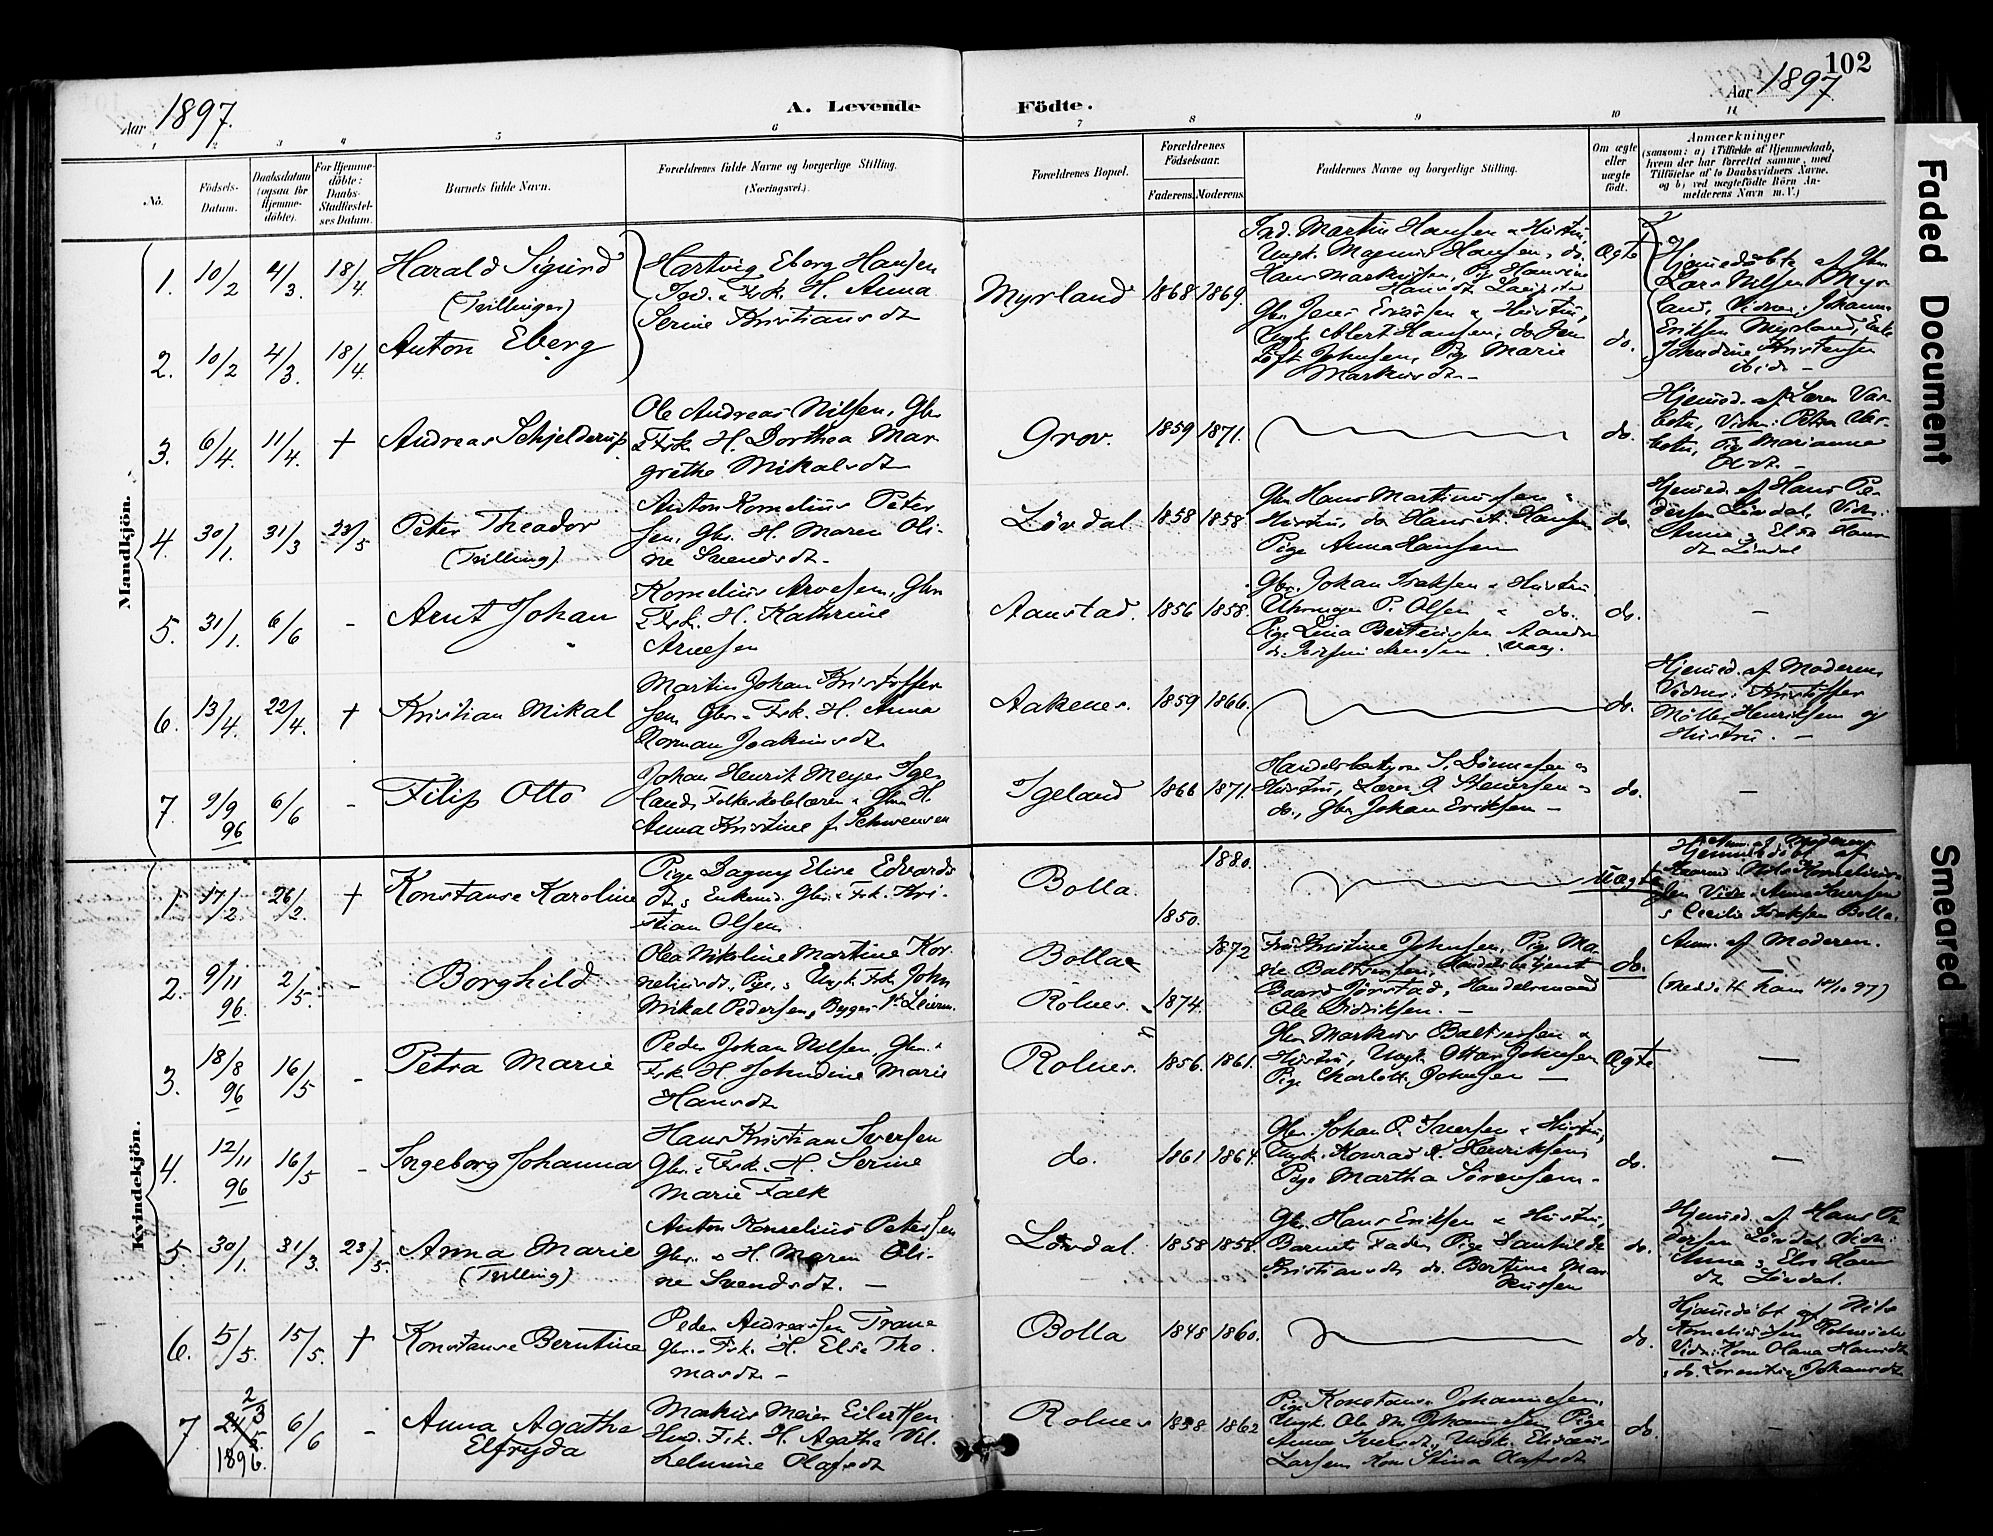 102
Aar 1897.
A. Levende Födte.
Aar 1897.
1 2 3 4 5 6 7 8 9 10 11
No.
Födsels-Datum.
Daabsdatum (ogsaa för Hjemmedöbte).
For Hjemmedöbte: Daabs-Stadfæstelses Datum.
Barnets fulde Navn.
Forældrenes fulde Navne og borgerlige Stilling. (Næringsvei.)
Forældrenes Bopæl.
Forældrenes Födselsaar.
Faderens. Moderens.
Faddernes Navne og borgerlige Stilling.
Om ægte eller uægte födt.
Anmærkninger
(saasom: a) i Tilfælde af Hjemmedaab,
hvem der har forrettet samme, med
Tilföielse af to Daabsvidners Navne,
og b) ved uægtefödte Börn An-
melderens Navn m. V.)
Mandkjön.
1. 10/2 4/3. 18/4. Harald Sigurd
(Tvillinger)
Hartvig Eberg Hansen
Ind. Fsk. H. Anna
Serine Kristiansdt
Myrland 1868 1869.
Ind. Martin Hansen & Hustru,
Ungk. Magnus Hansen, do.
Hans Markussen, Pige Hansine
Ægte
Hjemedöbte af Gbr.
Lars Nilsen Myr
land, Vidner: Johannes
Eriksen Myrland, Enke
Johndine Kristensen
ibid. —
2. 10/2 4/3. 18/4. Anton Eberg
Gbr. Jens Eriksen & Hustru,
Ungk. Albert Hansen, do Jen
Loft Johnsen, Pige Marie
Markusdt. —
do.
3. 6/4. 11/4. † Andreas Schjelderup
Ole Andreas Nilsen, Gbr
& Fsk. H. Dorthea Mar
grethe Mikalsdt
Grov. 1859 1871.
do.
Hjemed. af Lærer Var
beta, Vidn: Petra Var
beta, Pige Marianna
Olsdt. —
4. 30/1. 31/3 23/5 Peter Theador
(Tvilling)
Anton Kornelius Peter
sen, Gbr. H. Maren Oli-
ne Svendsdt.
Lövdal. 1858 1858.
Gbr. Hans Martinussen &
Hustru, do Hans A. Hansen
Pige Anna Hansen
do.
Hjemed. af Hans Pe-
dersen Lövdal, Vidn:
Anne & Elsa Hans
dt Lövdal
5. 31/1. 6/6 - Arnt Johan
Kornelius Arnesen, Gbr
& Fsk. H. Kathrine
Arnesen
Aanstad. 1856 1858.
Gbr. Johan Isaksen & Hustru
P. Olsen & do.
Pige Lina Berteussen
do.
—
6. 13/4. 22/4. † Kristian Mikal
Martin Johan Kristoffer
sen Gbr. Fsk. H. Anna
Norman Joakimsdt.
Aakenes. 1859 1866.
do.
Hjemed. af Moderen
Vidner: Kristoffer
Möller Henriksen og
Hustru. —
7. 9/9 96 6/6 - Filip Otto
Johan Henrik Meyer Ige
land, Folkeskolelærer & Gbr. H.
Anna Kristine f. Schwensen
Igeland 1866 1871.
Handelsbetjent S. Dönnesen &
Hustru, Lærer J. Steversen &
do., Gbr. Johan Eriksen —
do.
—
Kvindekjön.
1. 17/2. 26/2. † Konstanse Karoline
Pige Dagny Elise Edvards
dt. & Enkemd. Gbr. & Fsk. Kri-
stian Olsen.
Bolla. 1850. 1880.
Uægte
Hjemmedöbt af
Nils Kornelius
sen Vidn. Anna Iversen
& Cecilie Isaksen Bolla.
2. 9/11 96. 2/5. - Borghild
Olea Nikoline Martine Kor-
neliusdt., Pige, & Ungk. Fsk. John
Mikal Pedersen,
Bolla &
Rolnes. 1874. 1872
Kristine Johnsen, Pige Ma-
rie Baltsersen, Handelsbetjent
Baard Jörstad, Handelsmand
Ole Didriksen. —
do.
Anm. af Moderen.
3. 18/8 96 16/5 - Petra Marie
Peder Johan Nilsen, Gbr. &
Fsk. H. Johndine Marie
Hansdt.
Rolnes. 1856. 1861.
Gbr Markus Baltsersen &
Hustru, Ungk. Ottar Johnsen
Pige Charlotte Johnsen —
Ægte
—
4. 12/11 96 16/5 - Ingeborg Johanna
Hans Kristian Iversen
Gbr. & Fsk. H. Serine
Marie Falk
do. 1861 1864.
Gbr. Johan P. Iversen & Hustru,
Ungk. Konrad A. Henriksen,
Pige Martha Sörensen. -
do.
—
5. 30/1. 31/3. 23/5. Anna Marie
(Tvilling)
Anton Kornelius Petersen
Gbr. & H. Maren Oli-
ne Svendsdt. —
Lövdal. 1858 1858.
Gbr. Hans Eriksen & Hustru,
Barnets Fader, Pige Hanhilde
Kristiansdt. do. Bertine Mar
kussen
do.
Hjemed. af Hans Pe
dersen Lövdal, Vidn:
Anna & Elsa Hans
dt. Lövdal.
6. 5/5. 15/5. † Konstanse Berntine
Peder Andreassen Trane
Gbr. & Fsk. H. Else Tho
masdt. -
Bolla 1848 1860.
do.
Hjemedöbt af Nils
Korneliussen
Vidn: Kone Olava Hansdt.
& do. Lorentse Johansdt
7. 2/3 1896. 6/6 - Anna Agathe
Elfryda
Markus Meier Eilertsen
Ind. Fsk. H. Agathe Vil
helmine Olafsdt
Rolnes 1838. 1862
Pige Konstanse Johannesen,
Ungk. Ole M. Johannesen, Pige
Anna Iversdt., Ungk.
Larsen Kone Stina Olafsdt
do.
-
Faded Document
Smeared